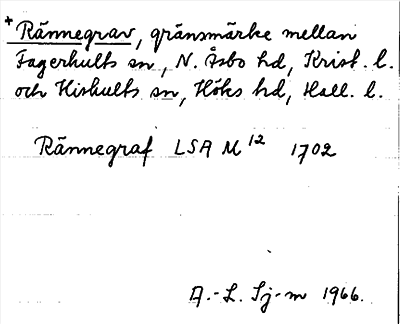 + Rännegrav, gränsmärke mellan
Fagerhults sn, N. Åsbo hd, Krist. l.
och Hishults sn, Höks hd, Hall. l.
Rännegraf LSA M 12 1702
A.-L. Sj-m 1966.